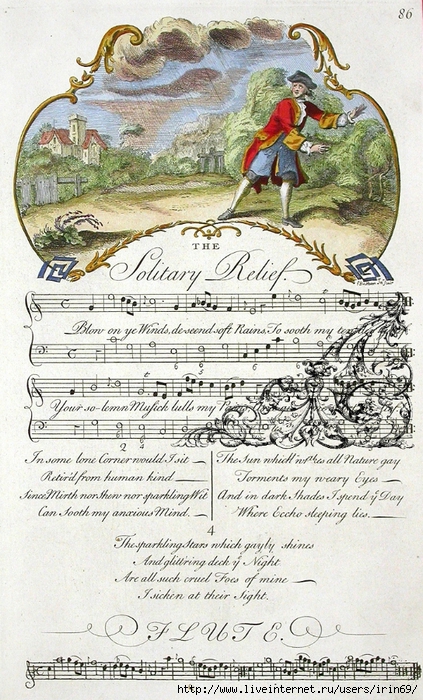 86
THE
Solitary Relief
Blow on ye Winds, de-scend soft Rains, To sooth my
Your so-lemn Musick lulls my
2
In some lone Corner would I sit
Retir'd from human kind
Since Mirth nor show nor sparkling Wit
Can Sooth my anxious Mind.
The Sun which all Nature gay
Torments my weary Eyes
And in dark Shades I spend yͤ Day
Where Eccho sleeping lies.
4
The sparkling Stars which gayly shines
And glitt'ring deck yͤ Night
Are all such cruel Foes of mine
I sicken at their Sight.
FLUTE.
http://www.liveinternet.ru/users/irin69/